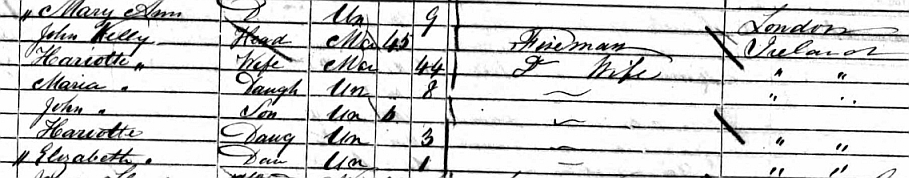 " Mary Ann D Un 9 London
John Kelly Head Mar 45 Fireman Ireland
Hariotte " Wife Mar 44 F Wife " "
Maria " Daugh Un 8 " "
John " Son Un 6
Hariotte Daug Un 3 " "
" Elizabeth " Dau Un 1 " "